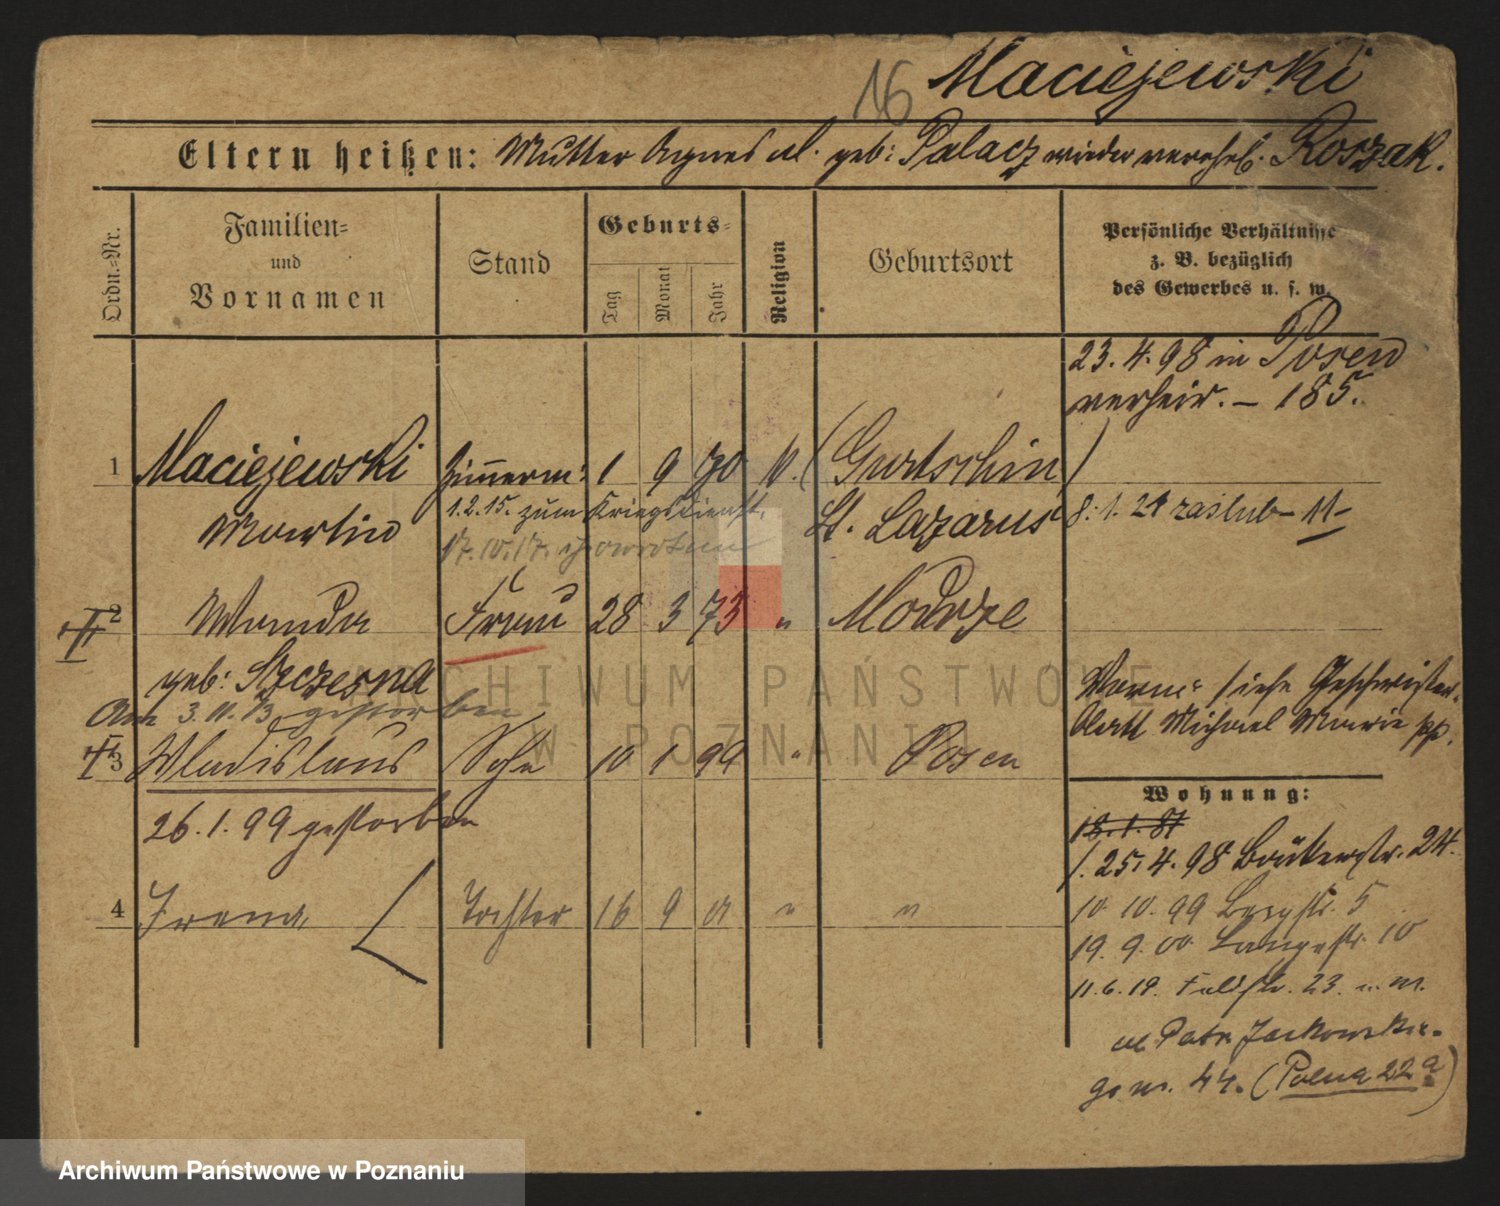 16 Maciejewski
Eltern heißen: Mutter Agnes geb: Palacz wieder verehel. Roszak.
Ordn.-Nr.
Familien-
und
Vornamen
Stand
Geburts-
Tag
Monat
Jahr
Religion
Geburtsort
Persönliche Verhältnisse
z. B. bezüglich
des Gewerbes u. s. w.
23. 4. 98 in Posen
verheir. – 185.
1 Maciejewski Zimmerm: 1 9 70 (Gurtschin)
Martin 1.2.15. zum Kriegsdienst. St. Lazarus 8. 1. 21 zaślub – 11 –
17. 10. 17.
2 Wanda Frau 28 3 73 " Modrze
geb: Szczesna
Am 3. 11. 13 gestorben
Vorm: siehe Geschwister-
blatt Michael Marie pp.
3 Wladislaus Sohn 10 1 99 " Posen
26. 1. 99 gestorben
Wohnung:
18. 1. 81
1. 25. 4. 98 Bäckerstr. 24.
4 Irena Tochter 16 9 01 " "
10. 10. 99 Bergstr. 5
19. 9. 00. Langestr. 10
11. 6. 19. Feldstr. 23.
ul Patr. Jackowskie-
go m. 47. (Polna 22a)
ARCHIWUM PAŃSTWOWE
W POZNANIU
Archiwum Państwowe w Poznaniu